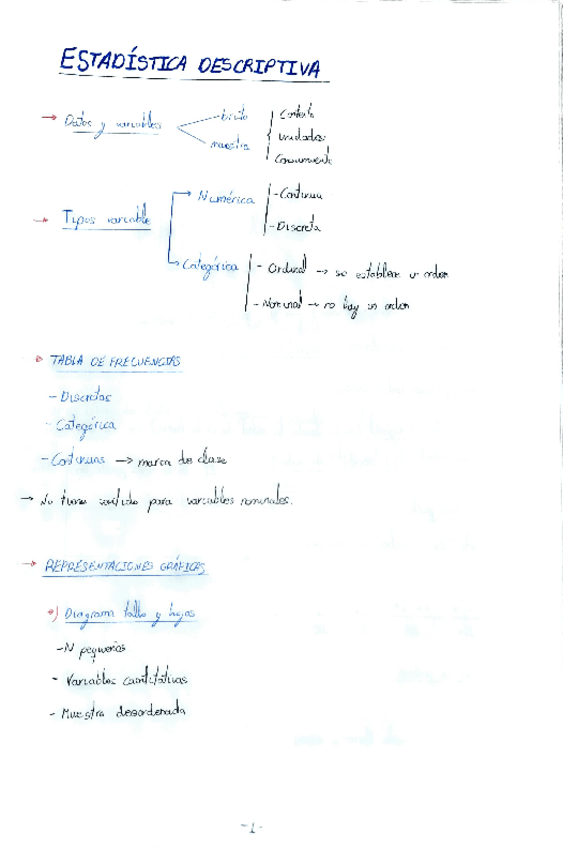 ESTADÍSTICA DESCRIPTIVA
→ Datos y variables
bruto
muestra
Contexto
Unidades
→ Tipos variable
Numérica
- Continua
- Discreta
Categórica
- Ordinal → se establece un orden
- Nominal → no hay un orden
TABLA DE FRECUENCIAS
- Discretas
- Categórica
- Continuas → marca de clase
→ No tiene sentido para variables nominales.
→ REPRESENTACIONES GRÁFICAS
*) Diagrama tallo y hojas
- N pequeños
- Variables cuantitativas
- Muestra desordenada
-1-